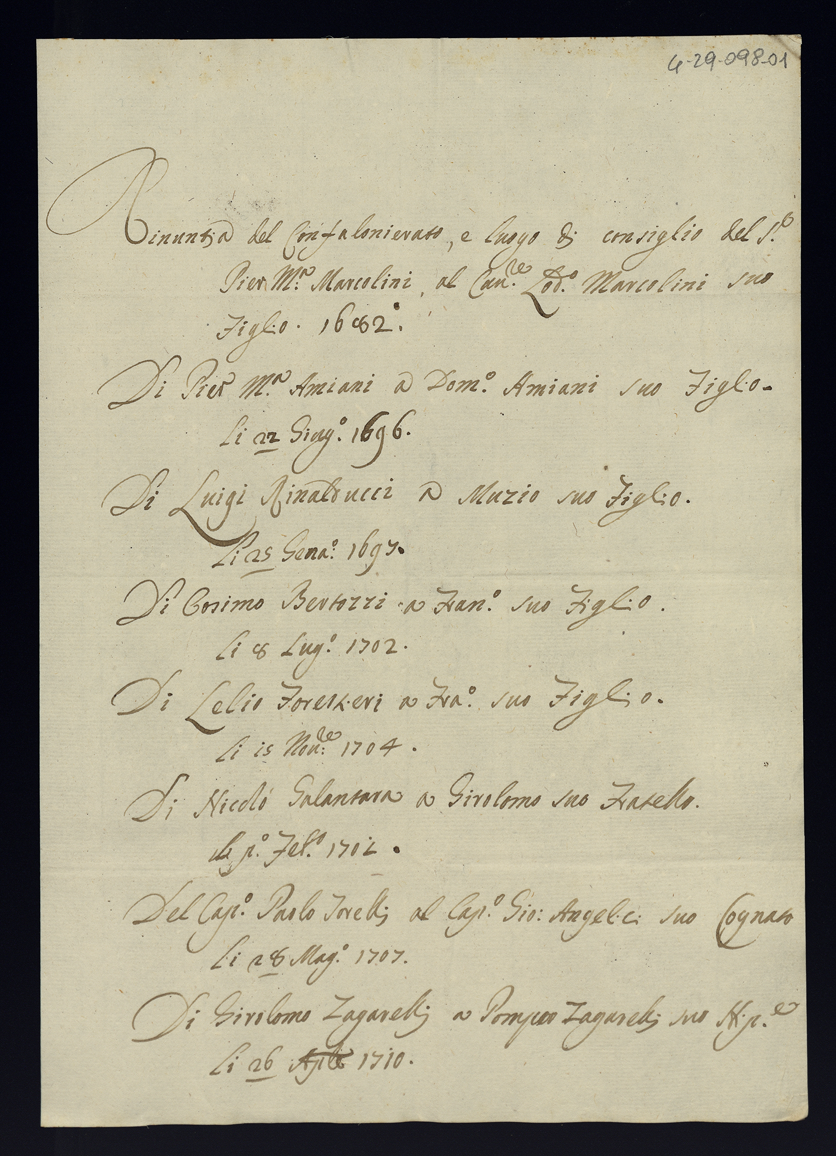 4-29-098-01
Rinuntia del Confalonierato, e luogo di consiglio del S.r
Pier M.a Marcolini, al Cau.re Lod.o Marcolini suo
Figlio. 1682.
Di Pier M.a Amiani a Dom.o Amiani suo Figlio.
li 22 Giug.o 1696.
Di Luigi Rinalducci a Muzio suo Figlio.
li 25 Gena.o 1697.
Di Cosimo Bertozzi a Fran.o suo Figlio.
li 8 Lug.o 1702.
Di Lelio Forestieri a Fra.o suo Figlio.
li 15 Nou.re 1704.
Di Nicolò Galantara a Girolomo suo Fratello.
li p.o Feb.o 1702.
Del Cap.o Paolo Torelli al Cap.o Gio: Angelic: suo Cognato
li 28 Mag.o 1707.
Di Girolomo Zagarelli a Pompeo Zagarelli suo Nip.e
li 26 Aple 1710.